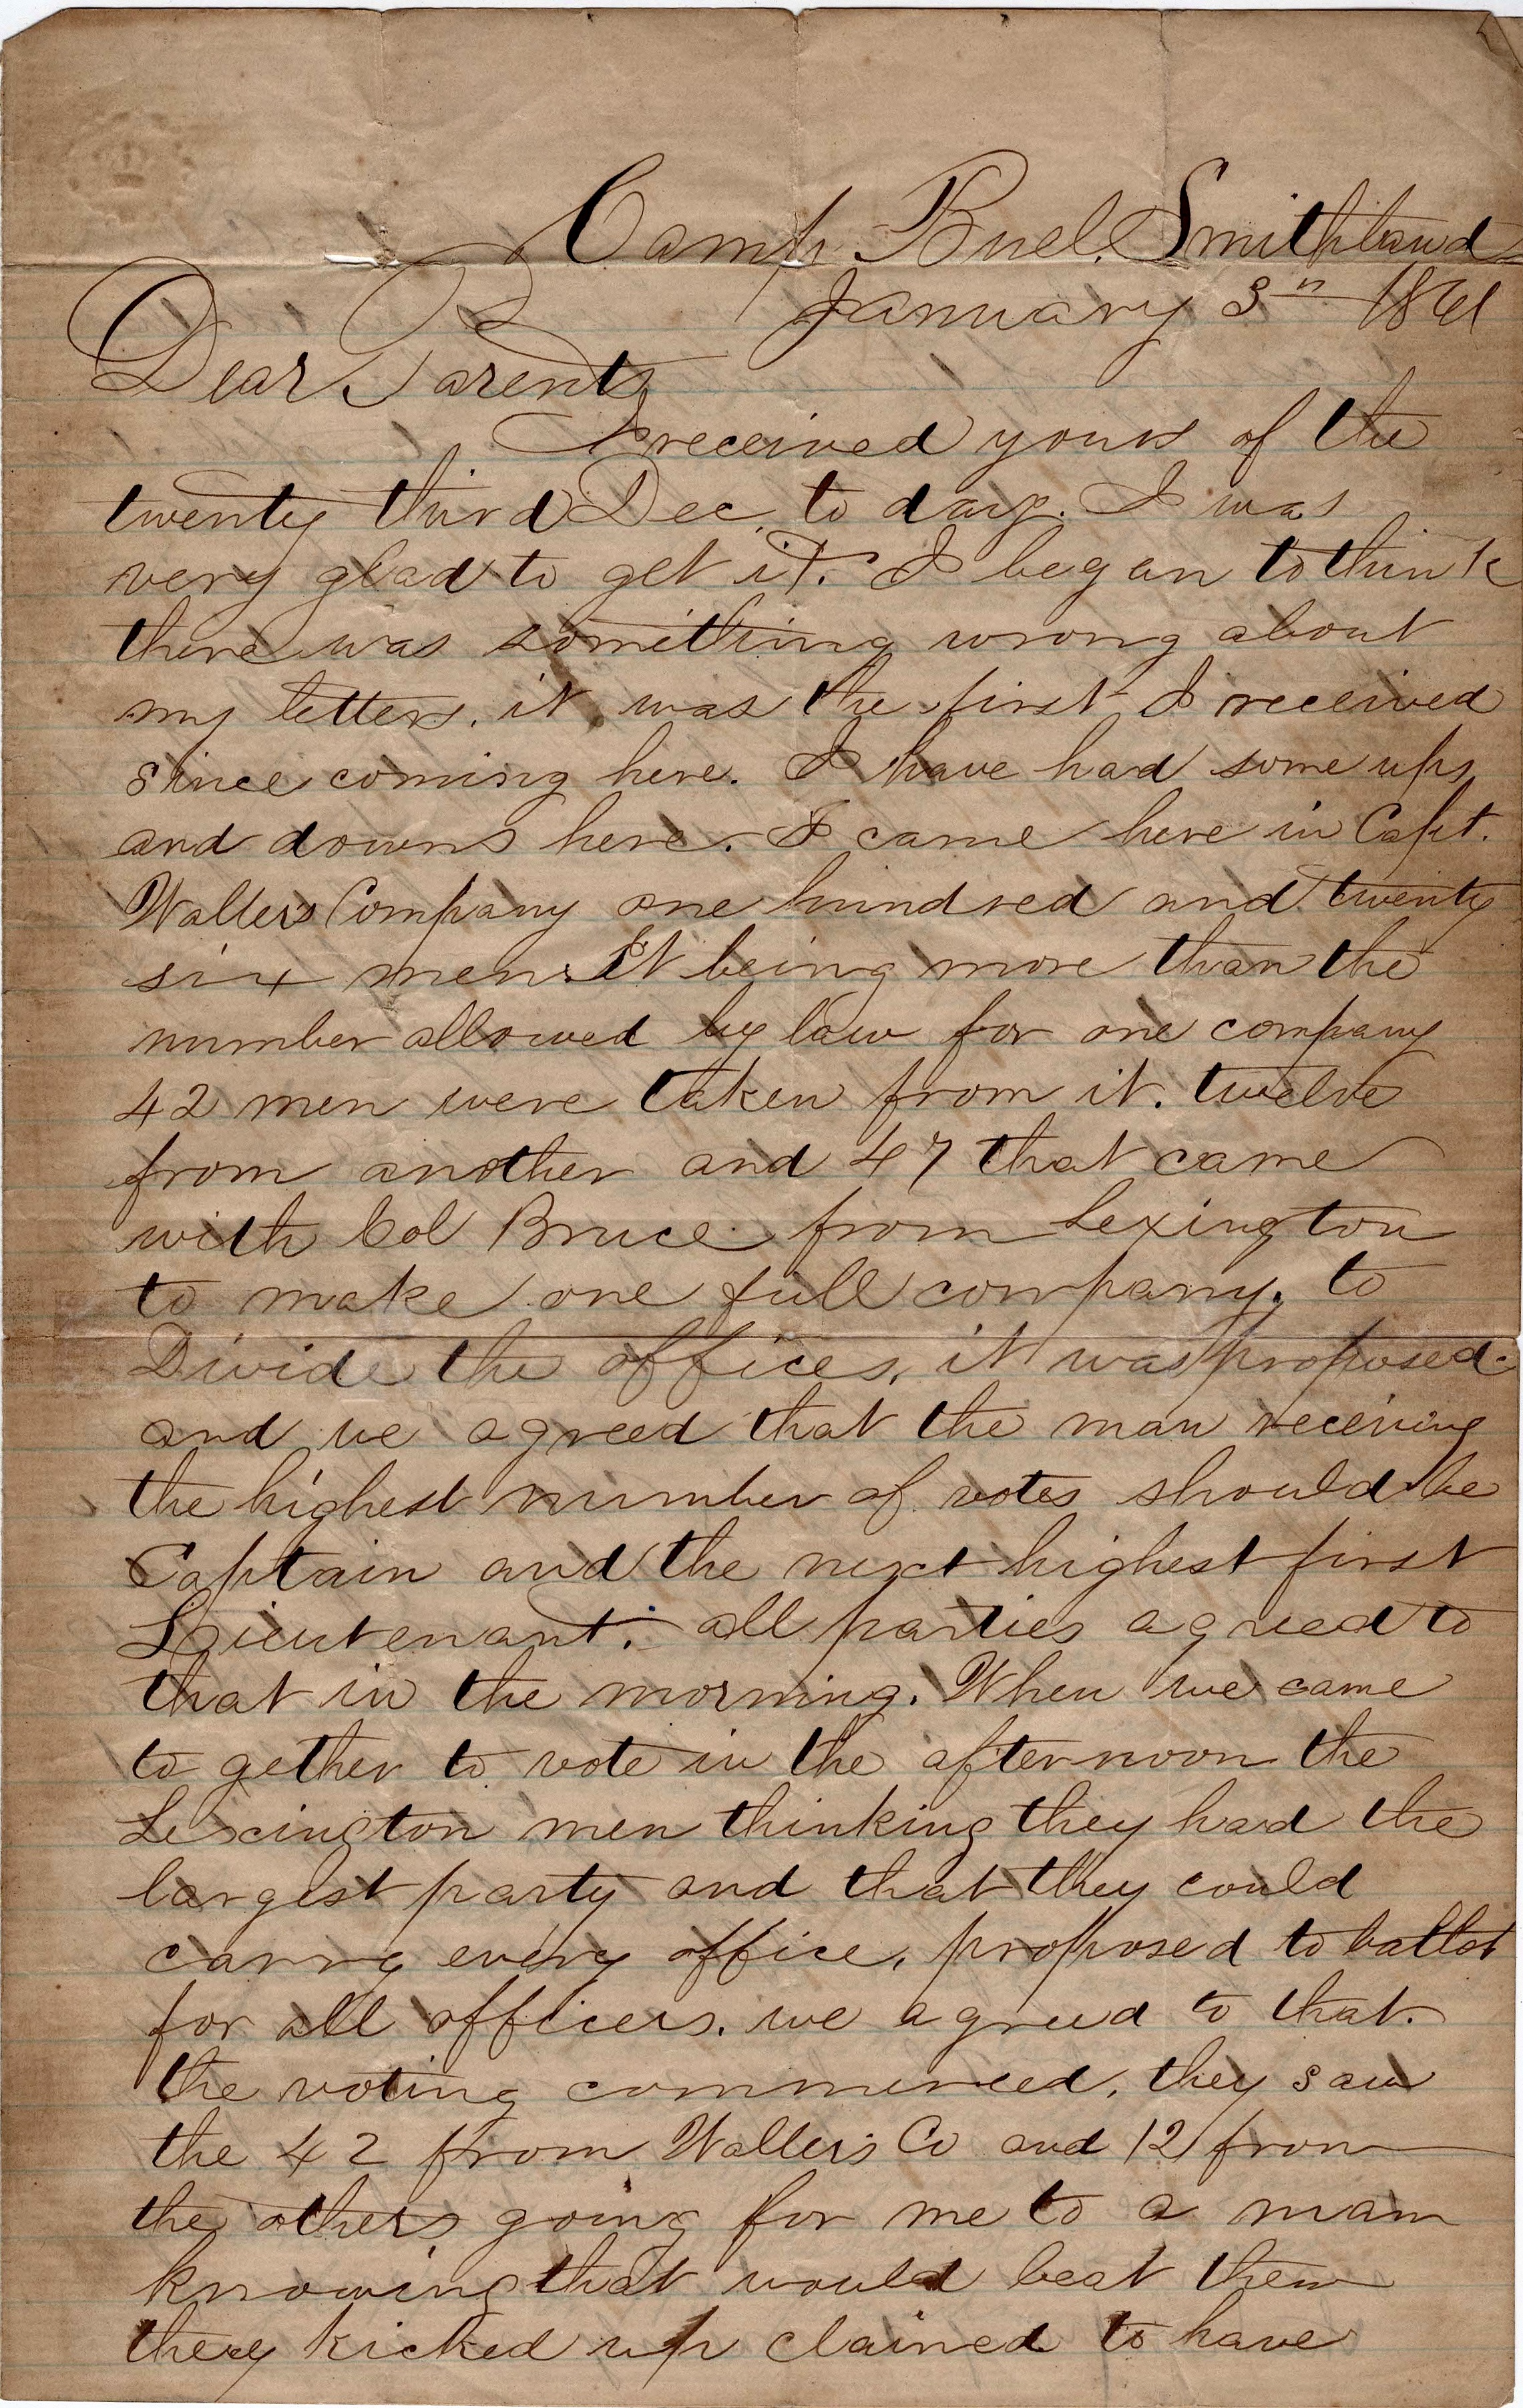 Camp Buel. Smithland
January 3rd 1861
Dear Parents
I received yours of the
twenty third Dec. to day. I was
very glad to get it. I began to think
there was something wrong about
my letters. it was the first I received
since coming here. I have had some ups
and downs here. I came here in Capt.
Wallers Company one hundred and twenty
six men. It being more than the
number allowed by law for one company
42 men were taken from it. twelve
from another and 47 that came
with Col Bruce from Lexington
to make one full company. to
Divide the offices, it was proposed
and we agreed that the man receiving
the highest number of votes should be
Captain and the next highest first
Lieutenant. all parties agreed to
that in the morning. When we came
to gether to vote in the afternoon the
Lexington men thinking they had the
largest party and that they could
carry every office, proposed to ballot
for all officers. we agreed to that.
the voting commenced. they saw
the 42 from Waller's Co and 12 from
the others going for me to a man
knowing that would beat them
they kicked up claimed to have